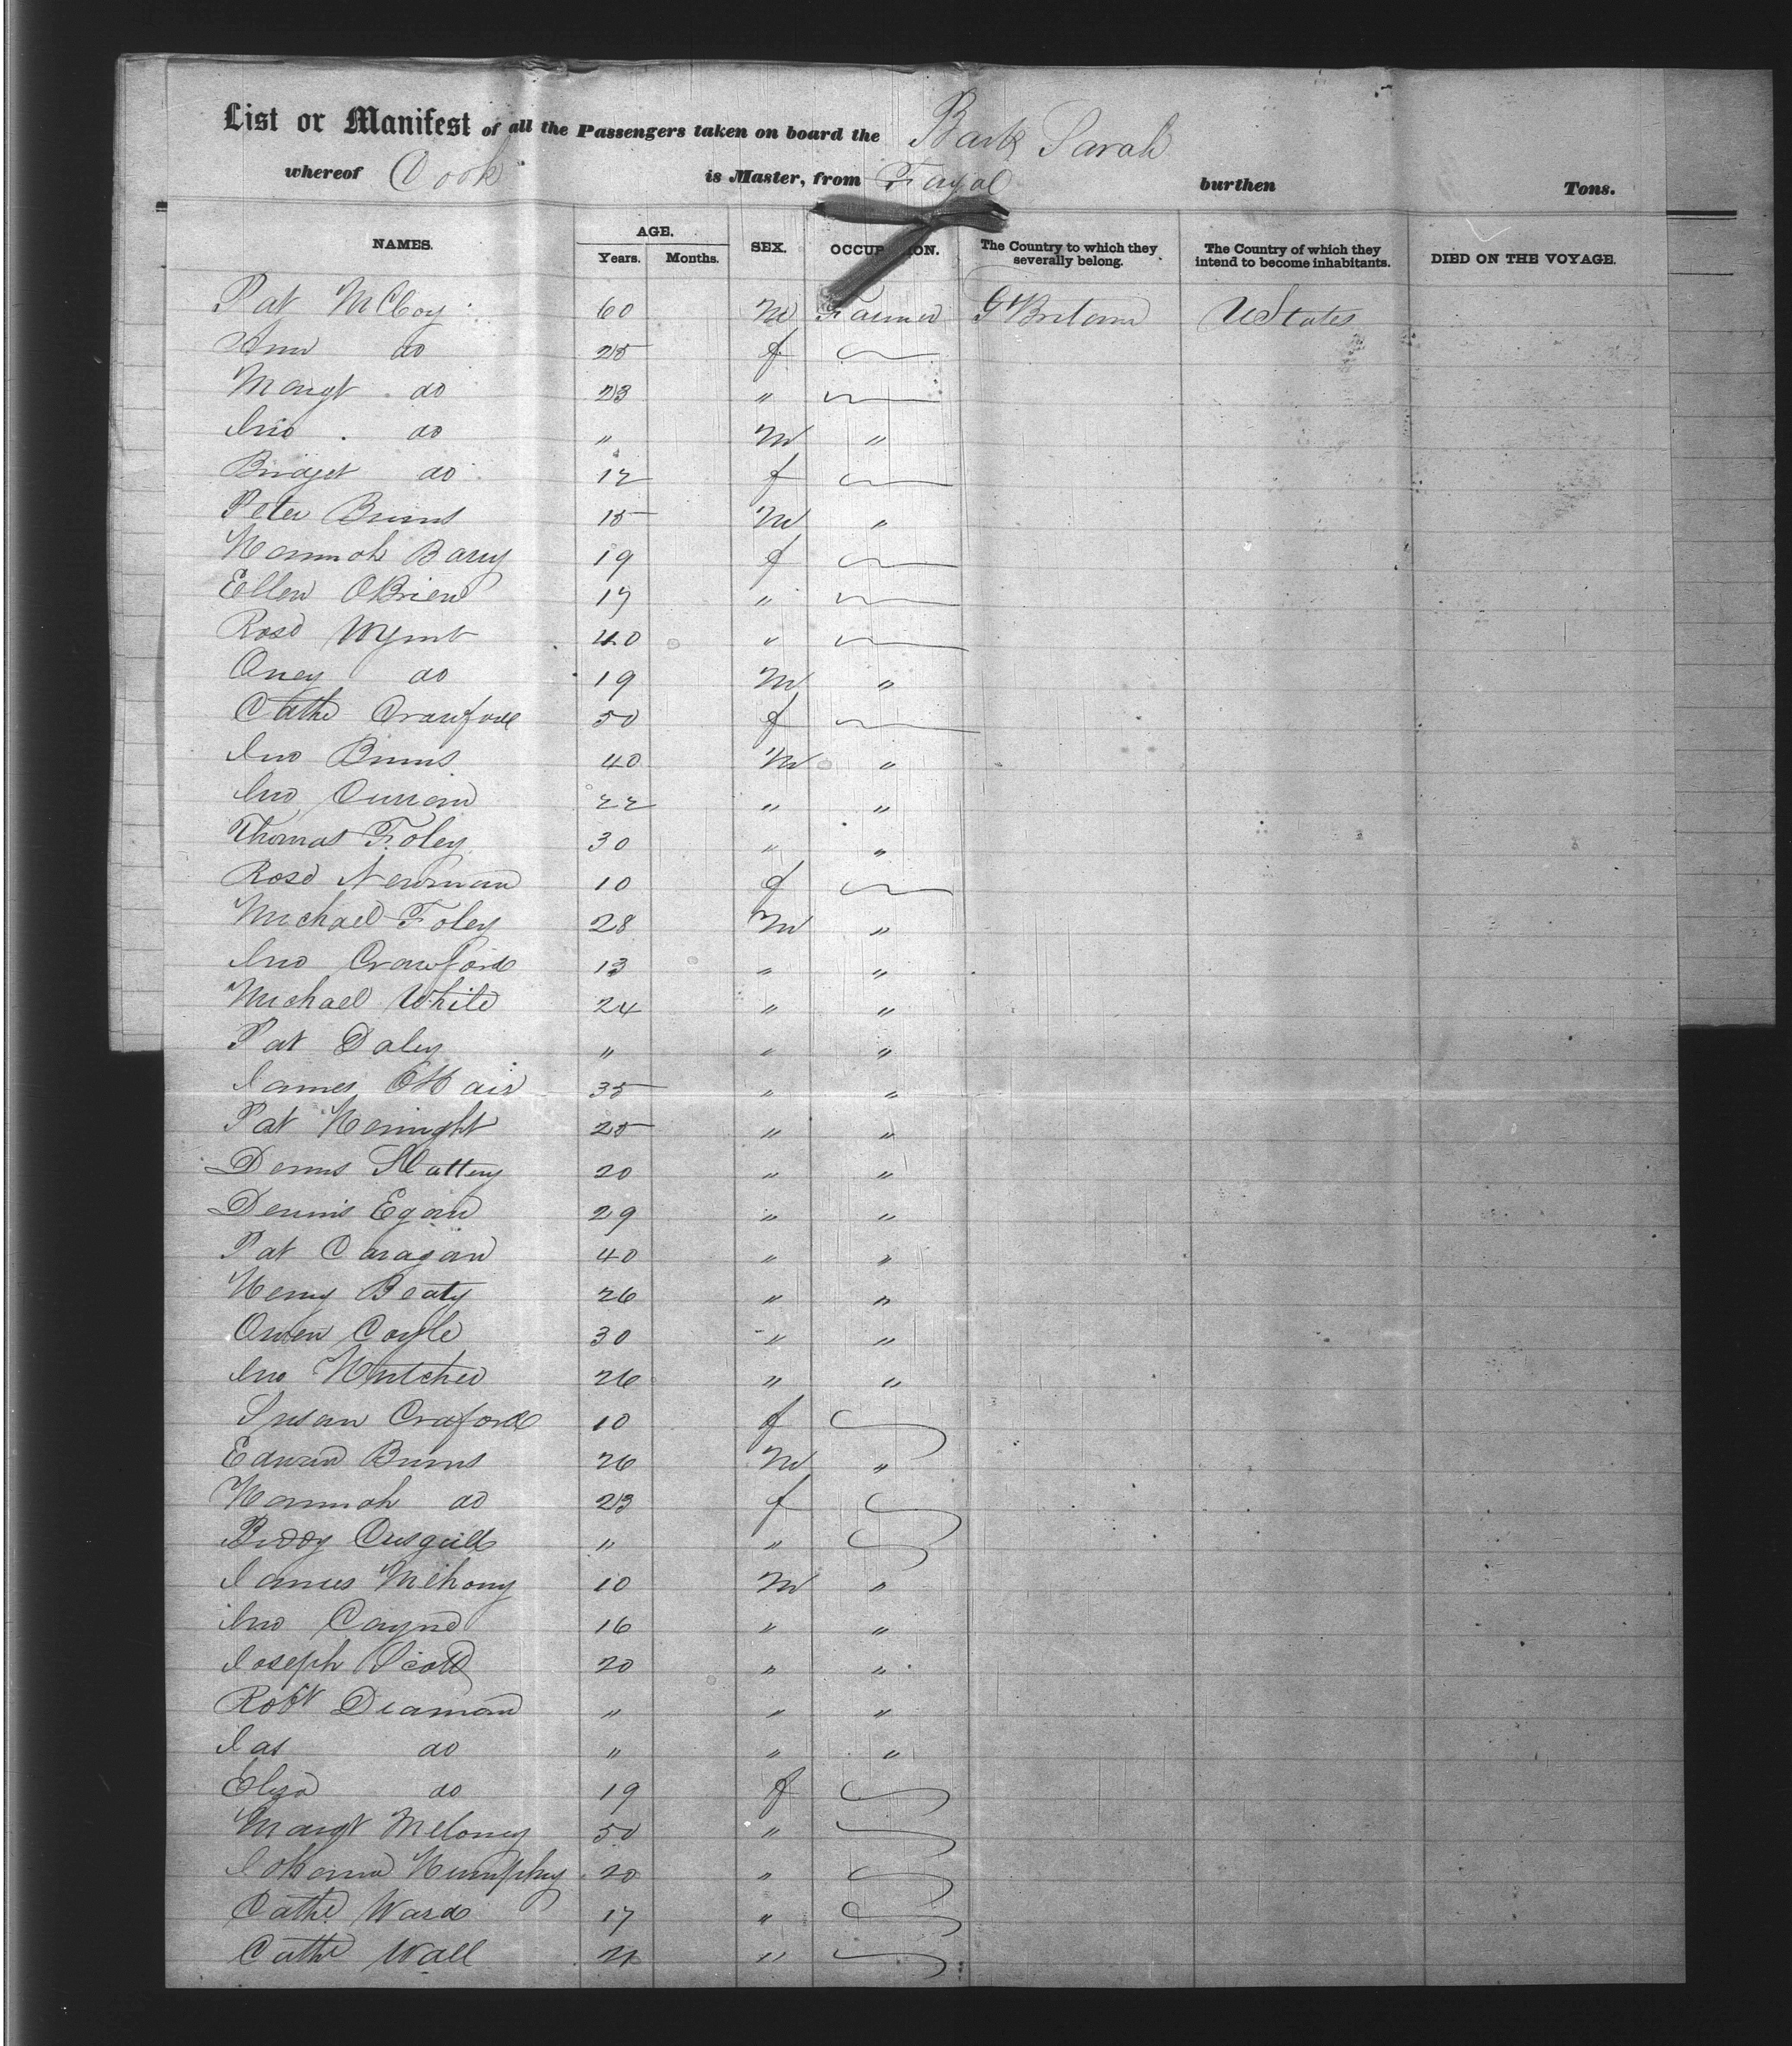 List or Manifest of all the Passengers taken on board the Bark Sarah
whereof Cook is Master, from Fayal burthen Tons.
NAMES. AGE. Years. Months. SEX. OCCUPATION. The Country to which they severally belong. The Country of which they intend to become inhabitants. DIED ON THE VOYAGE.
Pat McCoy 60 M Farmer Gt Britain UStates
Ann do 25 f
Margt do 23 "
Jno do " M "
Bridget do 12 f
Peter Burns 15 M "
Hannah Barry 19 f
Ellen OBrien 17 "
Rose 40 "
Oney do 19 M "
Cathe Crawford 50 f
Jno Burns 40 M "
Jno Curran 22 " "
Thomas Foley 30 " "
Rose Newman 10 f
Michael Foley 28 M "
Jno Crawford 13 " "
Michael White 24 " "
Pat Daley " " "
James OHair 35 " "
Pat 25 " "
Dennis Slattery 20 " "
Dennis Egan 29 " "
Pat Caragan 40 " "
Henry Beaty 26 " "
Owen Coyle 30 " "
Jno 26 " "
Susan Craford 10 f
Edward Burns 26 M "
Hannah do 23 f
Biddy " "
James Mehony 10 M "
Jno Cayne 16 " "
Joseph Scott 20 " "
Robt Deaman " " "
Jas do " " "
Eliza do 19 f
Margt Meloney 50 "
Johanna Humphry 20 "
Cathe Ward 17 "
Cathe Wall "